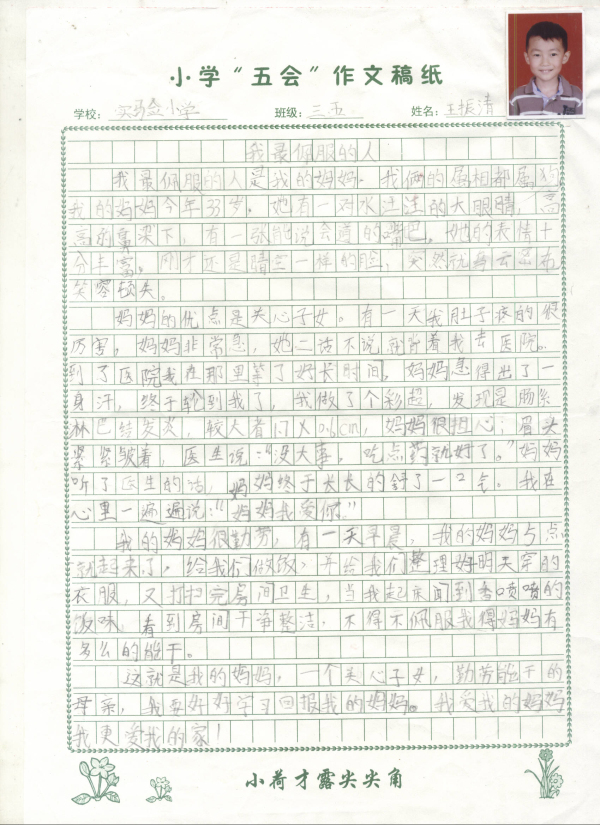 小学“五会”作文稿纸
学校：实验小学 班级：三五 姓名：王振清
我最佩服的人
我最佩服的人是我的妈妈。我俩的属相都属狗
我的妈妈今年33岁。她有一对水汪汪的大眼睛，高
高的鼻梁下，有一张能说会道的嘴巴。她的表情十
分丰富。刚才还是晴空一样的脸，突然就乌云密布
笑容顿失。
妈妈的优点是关心子女。有一天我肚子疼的很
厉害，妈妈非常急，她二话不说就背着我去医院。
到了医院我在那里等了好长时间，妈妈急得出了一
身汗，终于轮到我了，我做了个彩超，发现是肠系
林巴结发炎，较大者1.7X0.6cm，妈妈很担心；眉头
紧紧皱着，医生说：“没大事，吃点药就好了。”妈妈
听了医生的话，妈妈终于长长的舒了一口气。我在
心里一遍遍说：“妈妈我爱你。”
我的妈妈很勤劳，有一天早晨，我的妈妈5点
就起来了，给我们做饭，并给我们整理好明天穿的
衣服，又打扫完房间卫生，当我起床闻到香喷喷的
饭味，看到房间干净整洁，不得不佩服我得妈妈有
多么的能干。
这就是我的妈妈，一个关心子女，勤劳能干的
母亲，我要好好学习回报我的妈妈。我爱我的妈妈
我更爱我的家！
小荷才露尖尖角